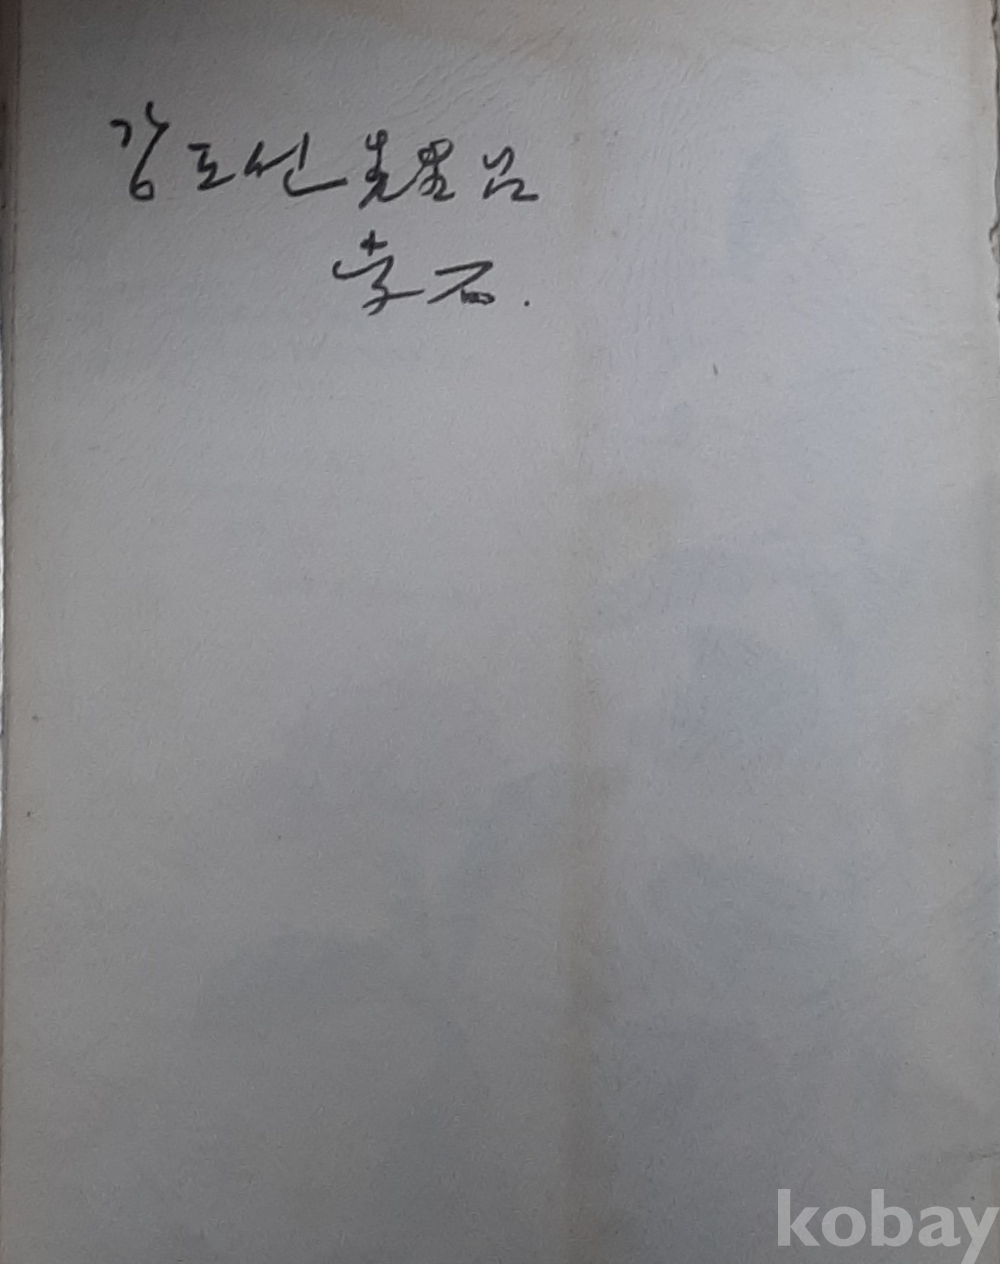 강조선 先生님
韋石.
kobay